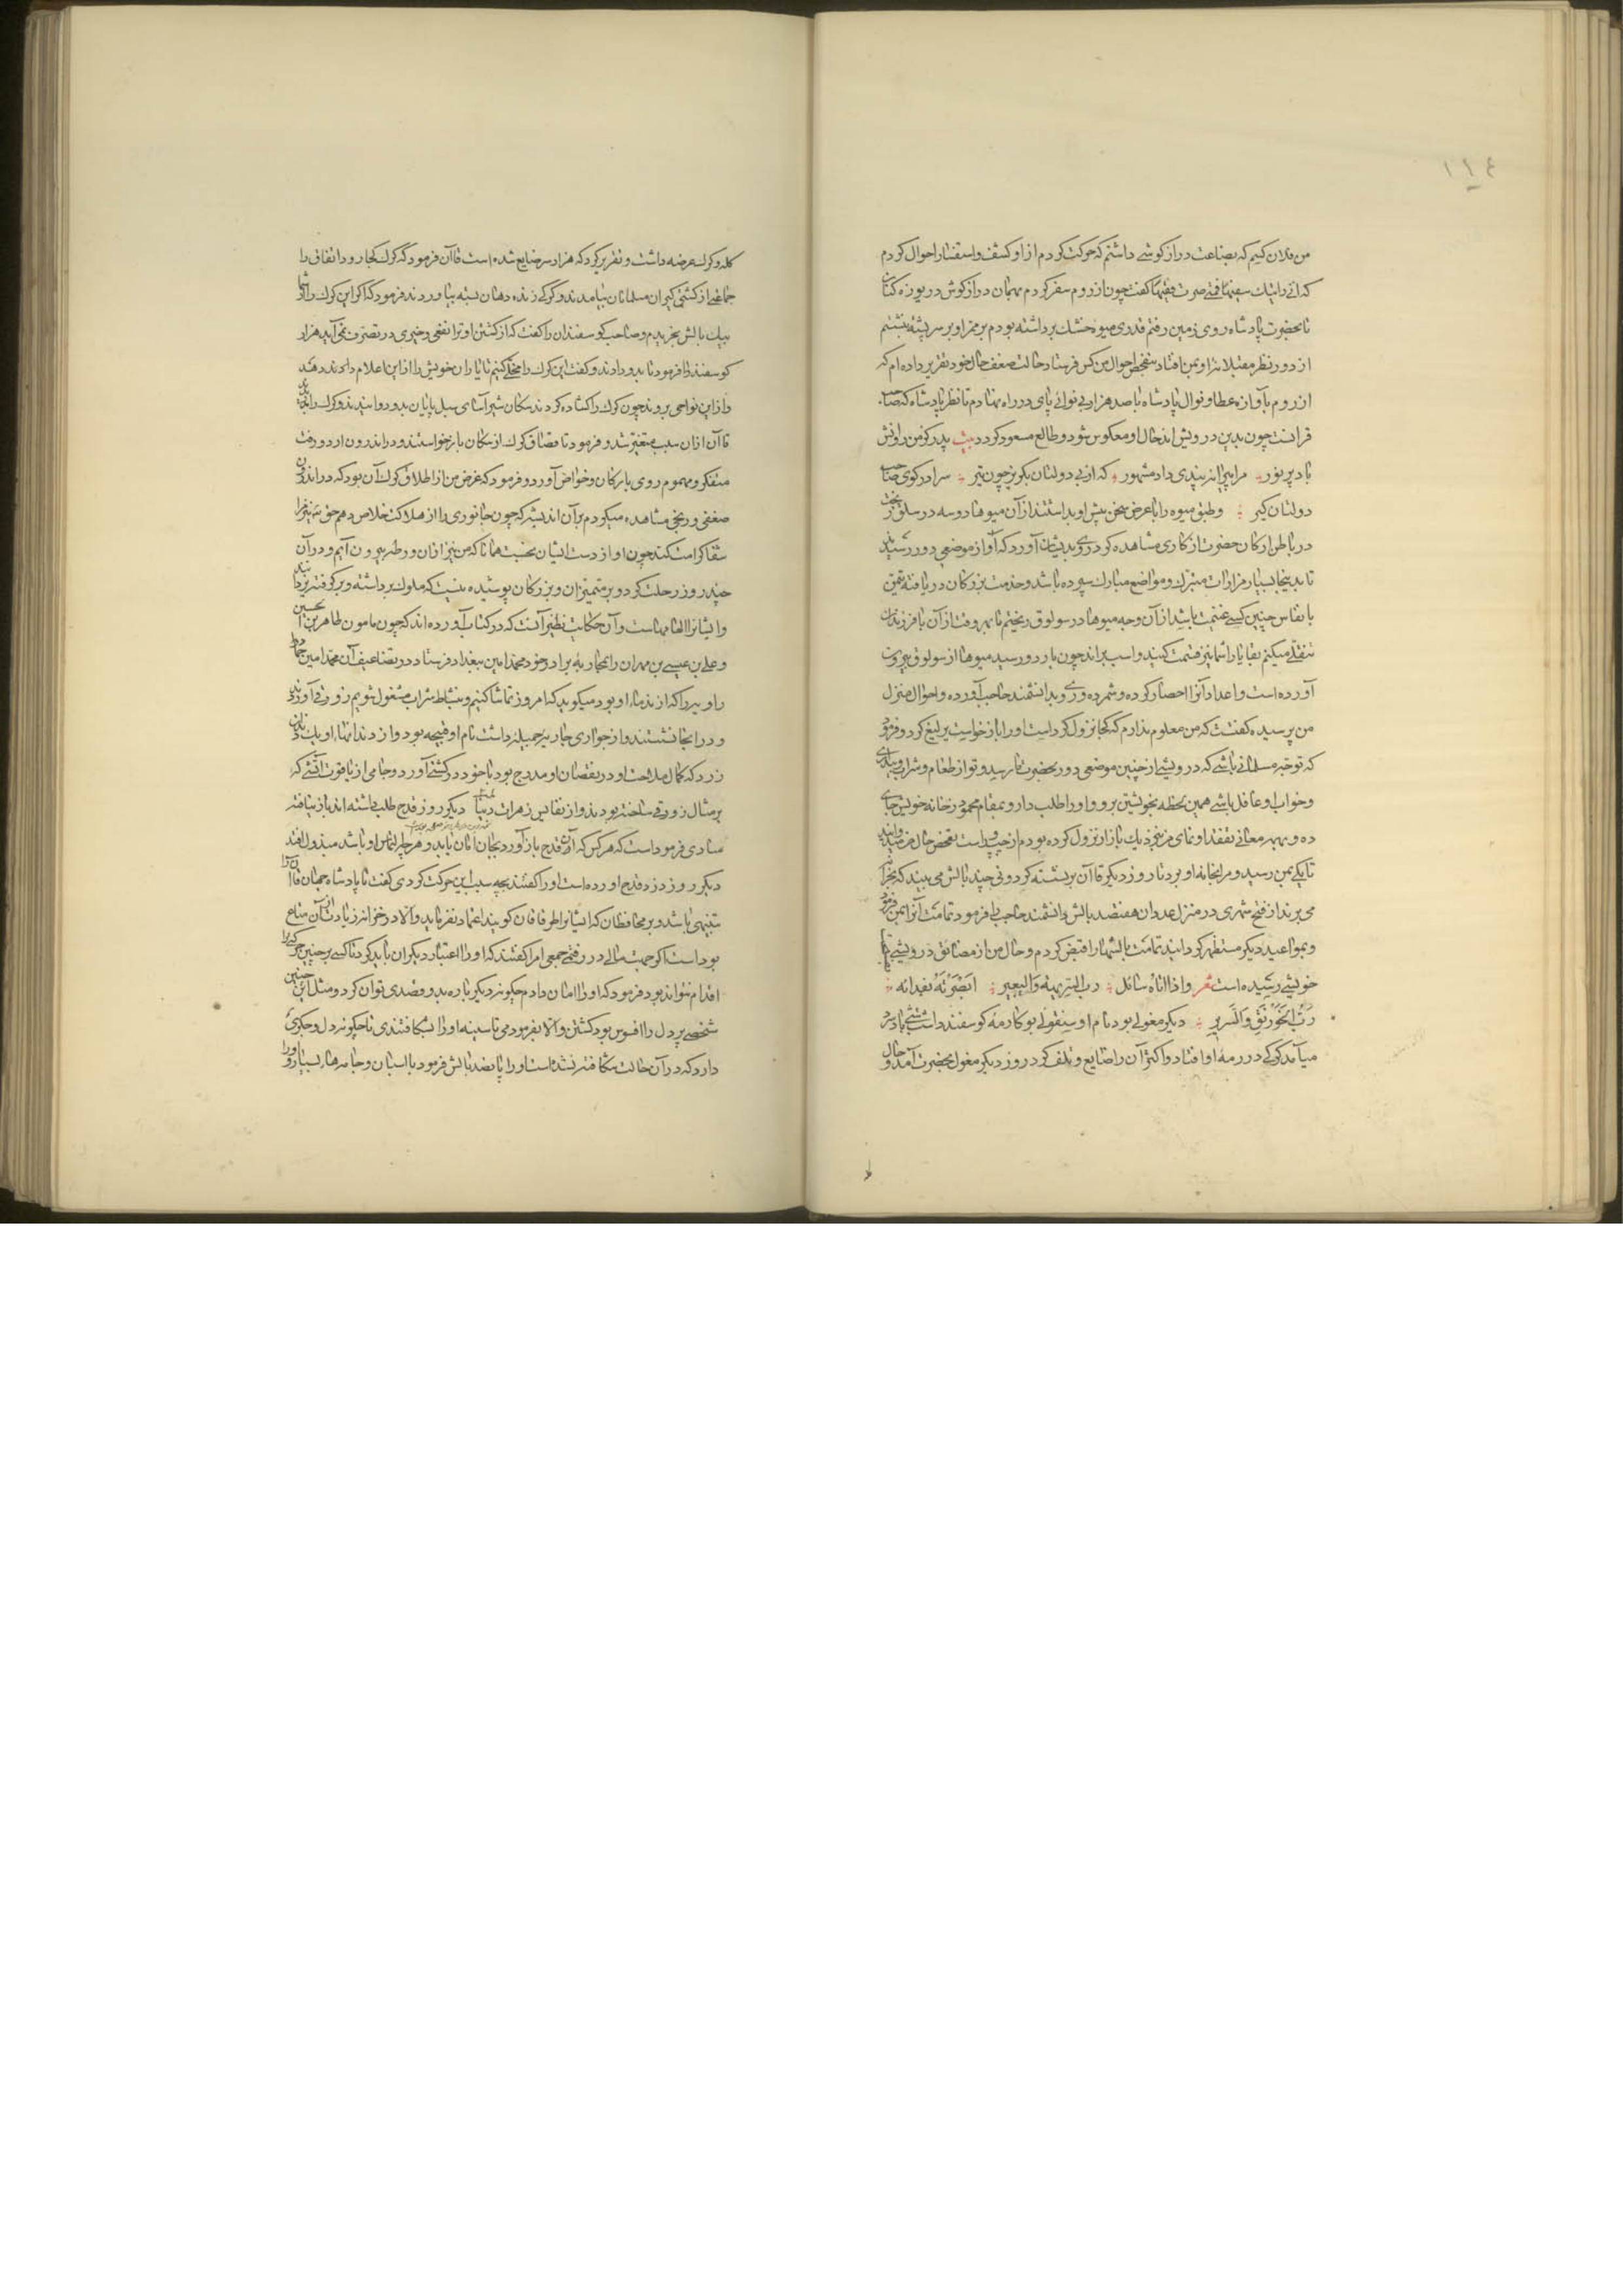 ١١٤
من فلان کسم که بضاعت دراز کوشی داشتم که حرکت کردم از او کشف واستفسار احوال کردم
کفت چون از روم سفر کردم
تا بحضرت پادشاه روی زمین رفتم قدری میوه خشک برداشته بودم بر ممر او بر سر پشته بنشستم
از دور نظر مقبلانه او بمن افتاد بتفحص احوال من کس فرستاد حالت ضعف حال خود تقریر داده ام که
از روم بآوازه عطا و نوال پادشاه با صد هزار بی نوائی پای در راه نهادم تا نظر پادشاه که صاحب
قرانست چون بدین درویش اند حال او معکوس شود و طالع مسعود کردد بیت پدر کز من روانش
باد پر نور مرا پیرانه پندی داد مشهور که از بی دولتان بکریز چون تیر سرا در کوی صاحب
دولتان کیر وطبق میوه را با عرض سخن پیش او بداشتند از آن میوها دو سه در سلوق ریخت
در باطن ارکان حضرت انکاری مشاهده کرد روی بدیشان آورد که او از موضعی دور رسید
تا بدینجا بسیار مزارات متبرک و مواضع مبارک سپرده باشد وخدمت بزرکان دریافته تیمن
بانفاس چنین کسی غنیمت باشد از آن وجه میوها در سولوق ریختم تا بهر وقت از آن با فرزندان
تنقلی میکنم بقایا را شما نیز قسمت کنید واسب براند چون باردو رسید میوها از سولوق بیرون
آورده است واعداد آنرا احصا کرده و شمرده و روی بدانشمند حاجب آورده واحوال منزل
من پرسیده کفتست که من معلوم ندارم که کجا نزول کرداست اورا بازخواست بلیغ کرد و فرمود
که تو چه مسلمانی باشی که درویشی از چنین موضعی دور بحضرت ما رسید وتو از طعام وشراب وبیداری
وخواب او غافل باشی همین لحظه بخویشتن برو واورا طلب دار و بمقام محمود در خانه خویش جای
ده و بهمه معانی تفقد او نمای من نزدیک بازار نزول کرده بودم از چپ و راست تفحص حال من میدوانید
تا یکی بمن رسید ومرا بخانه او برد تا روز دیکر قاآن برنشسته کردونی چند بالش می بیند که بخزانه
می برند از فتح شهری در منزل عدد آن هفتصد بالش دانشمند حاجب را فرمود تمامت آنرا بمن
وبمواعید دیکر مستظهر کردانید تمامت بالشها را قبض کردم وحال من از مضائق درویشی
خویشی رسیده است شعر واذا اتاه سائل رب الشویهة والبعیر ابصرته بفنائه
رب الخورنق والسریر دیکر مغولی بود نام او سنقولی بوکا رمه کوسفند داشت شبی باد سرد
میآمد کرکی در رمه او افتاد واکثر آن را ضایع و تلف کرد روز دیکر مغول بحضرت آمد وحال
کله وکرک عرضه داشت و تقریر کرد که هزار سر ضایع شده است قاآن فرمود که کرک کجا رود اتفاق را
جماعتی از کشتی کیران مسلمانان بیامدند وکرکی زنده دهان بسته بیاوردند فرمود که اکر این کرک را از شما
بیک بالش بخریدم و صاحب کوسفندان را کفت که از کشتن او ترا نفعی وخیری در تصرف نمیآید هزار
کوسفند را فرمود تا بدو دادند وکفت این کرک را مخلی کنیم تا یاران خویش را از این اعلام
واز این نواحی بروند چون کرک را کشاده کردند سکان شیر آسای
قاآن ازان سبب متغیر شد و فرمود تا قصاص کرک از سکان بازخواستند و در اندرون اردو رفت
متفکر ومهموم روی بارکان وخواص آورد و فرمود که غرض من از اطلاق کرک آن بود که در اندرون
ضعفی و رنجی مشاهده میکردم بر آن اندیشه که چون جانوری را از هلاکت خلاص دهم حق مرا نیز
شفا کرامت کند چون او از دست ایشان نجست همانا که من نیز ازان ورطه بیرون آیم ودر آن
چند روز رحلت کرد و بر متمیزان و بزرکان پوشیده نیست که ملوک برداشته وبرکرفته یزدانند
وایشانرا الهامهاست وآن حکایت نظیر آنست که در کتاب آورده اند که چون مامون طاهر بن الحسین
وعلی بن عیسی بن مهران را بمحاربه برادر خود محمد امین ببغداد فرستاد در تضاعیف آن محمد امین حماد
راویه را که از ندماء او بود میکوید که امروز تماشا کنیم وبنشاط شراب مشغول شویم زورقی آوردند
ودر انجا نشستند واز جواری جاریه جمیله داشت نام او قبیحه بود واز دندانهاء او یک دندان
زرد که کمال ملاحت او در نقصان او مدرج بود با خود در کشتی آورد وجامی از یاقوت آتشی که
بر مثال زورقی ساخته بودند واز نفایس زهرات دنیا دیکر روز قدح طلب داشته اند باز نیافته
منادی فرموداست که هرکس که آن قدح باز آورد بجان امان یابد و هر چه التماس او باشد مبذول افتد
دیکر روز دزد قدح آورده است اورا کفتند بچه سبب این حرکت کردی کفت تا پادشاه جهان قاآن را
تنبیهی باشد و بر محافظان که ایشانرا طرقاقان کویند اعتماد نفرماید والا در خزانه زیادت از آن متاع
بوداست اکر جهت مالی در رفتمی جمعی امرا کفتند که اورا اعتبار دیکران باید کرد تا کسی بر چنین حرکت
اقدام نتواند بود فرمود که اورا امان دادم چکونه دیکر باره بدو قصدی توان کرد ومثل این چنین
شخصی پر دل را افسوس بود کشتن والا بفرمودمی تا سینه اورا بشکافتندی تا چکونه دل وجکری
دارد که در آن حالت شکافته نشده است اورا پانصد بالش فرمود با اسبان وجامهاء بسیار واورا